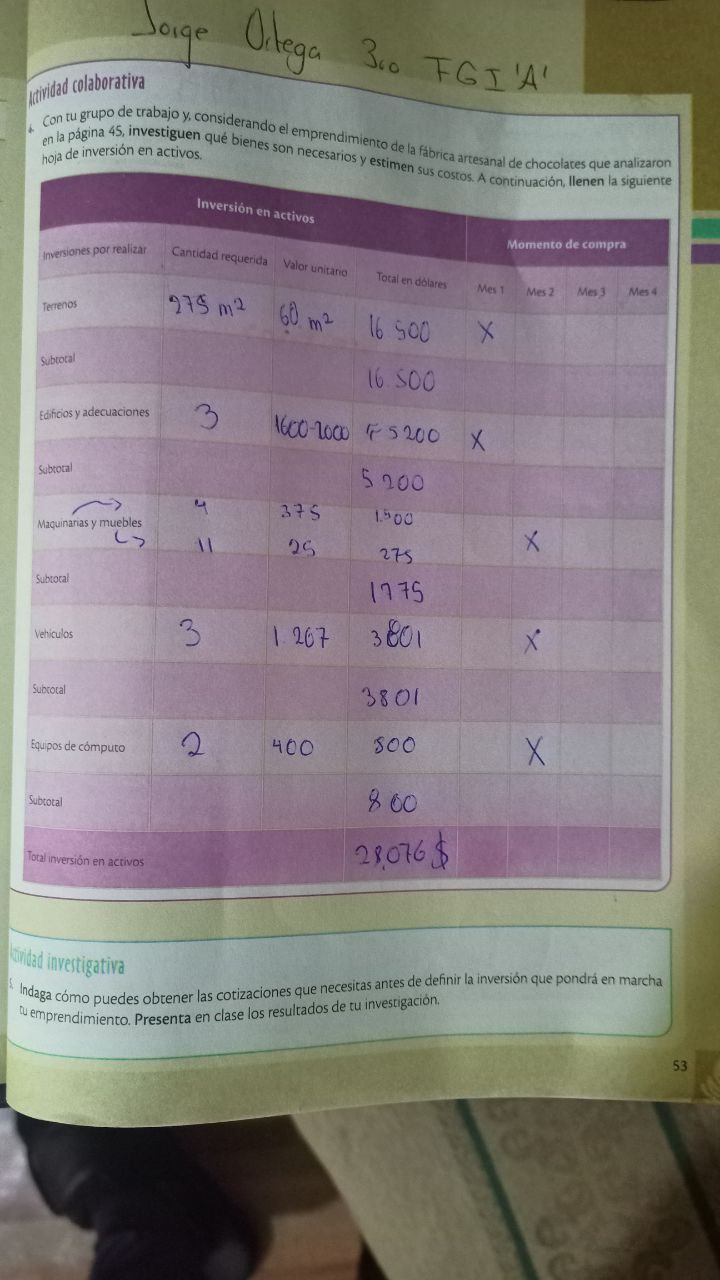 Jorge Ortega 3ro FGI 'A'
Actividad colaborativa
4. Con tu grupo de trabajo y, considerando el emprendimiento de la fábrica artesanal de chocolates que analizaron
en la página 45, investiguen qué bienes son necesarios y estimen sus costos. A continuación, llenen la siguiente
hoja de inversión en activos.
Inversión en activos
Momento de compra
Inversiones por realizar Cantidad requerida Valor unitario Total en dólares Mes 1 Mes 2 Mes 3 Mes 4
Terrenos 275 m2 60 m2 16 500 X
Subtotal 16.500
Edificios y adecuaciones 3 1600-2000 5200 X
Subtotal 5200
Maquinarias y muebles 4 375 1.500
11 25 275 X
Subtotal 1775
Vehículos 3 1.267 3801 X
Subtotal 3801
Equipos de cómputo 2 400 800 X
Subtotal 800
Total inversión en activos 28,076 $
Actividad investigativa
5. Indaga cómo puedes obtener las cotizaciones que necesitas antes de definir la inversión que pondrá en marcha
tu emprendimiento. Presenta en clase los resultados de tu investigación.
53